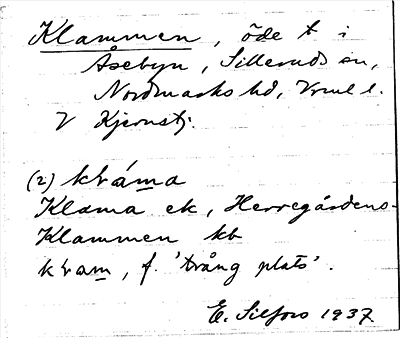 Klammen, öde t i
Åsebyn, Silleruds sn,
Nordmarks hd, Vrml l.
V Kjernstj.
(2) klváma
Klama ek, Herregårdens-
Klammen kb
klvam, f. 'trång plats'.
E. Silfors 1937